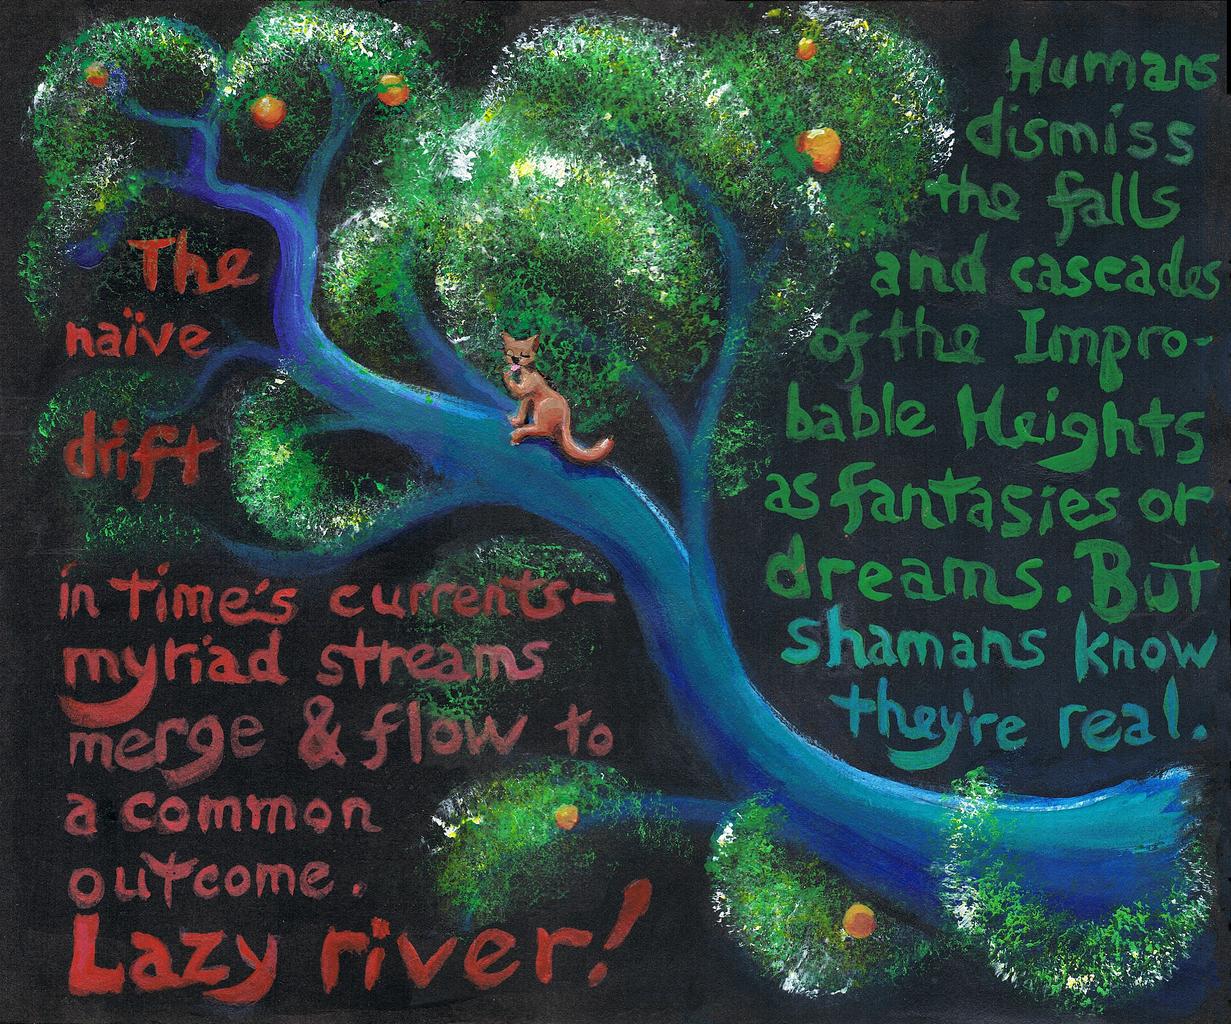 The
naïve
drift
in time's currents—
myriad streams
merge & flow to
a common
outcome.
Lazy river!
Humans
dismiss
the falls
and cascades
of the Impro-
bable Heights
as fantasies or
dreams. But
shamans know
they're real.